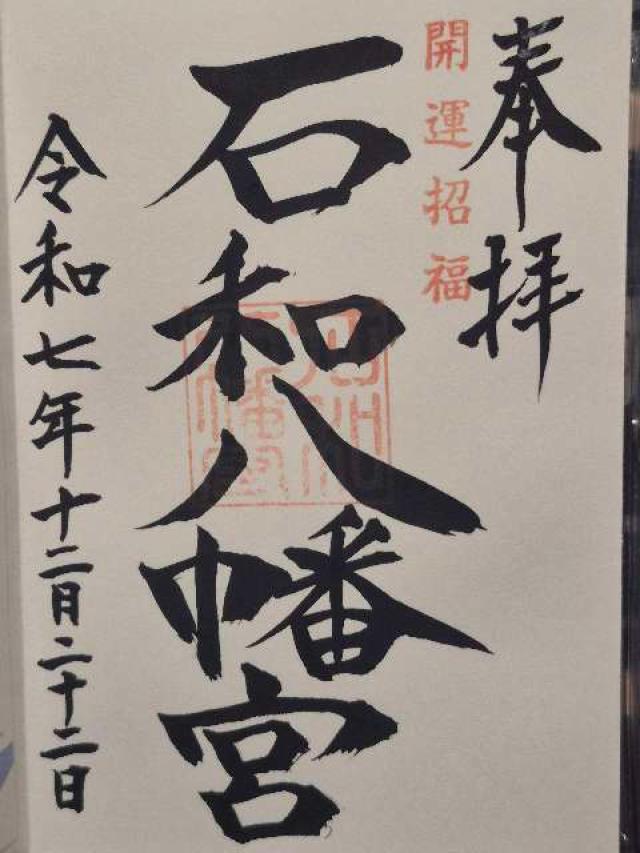 奉拝
開運招福
石和八幡宮
令和七年十二月二十二日